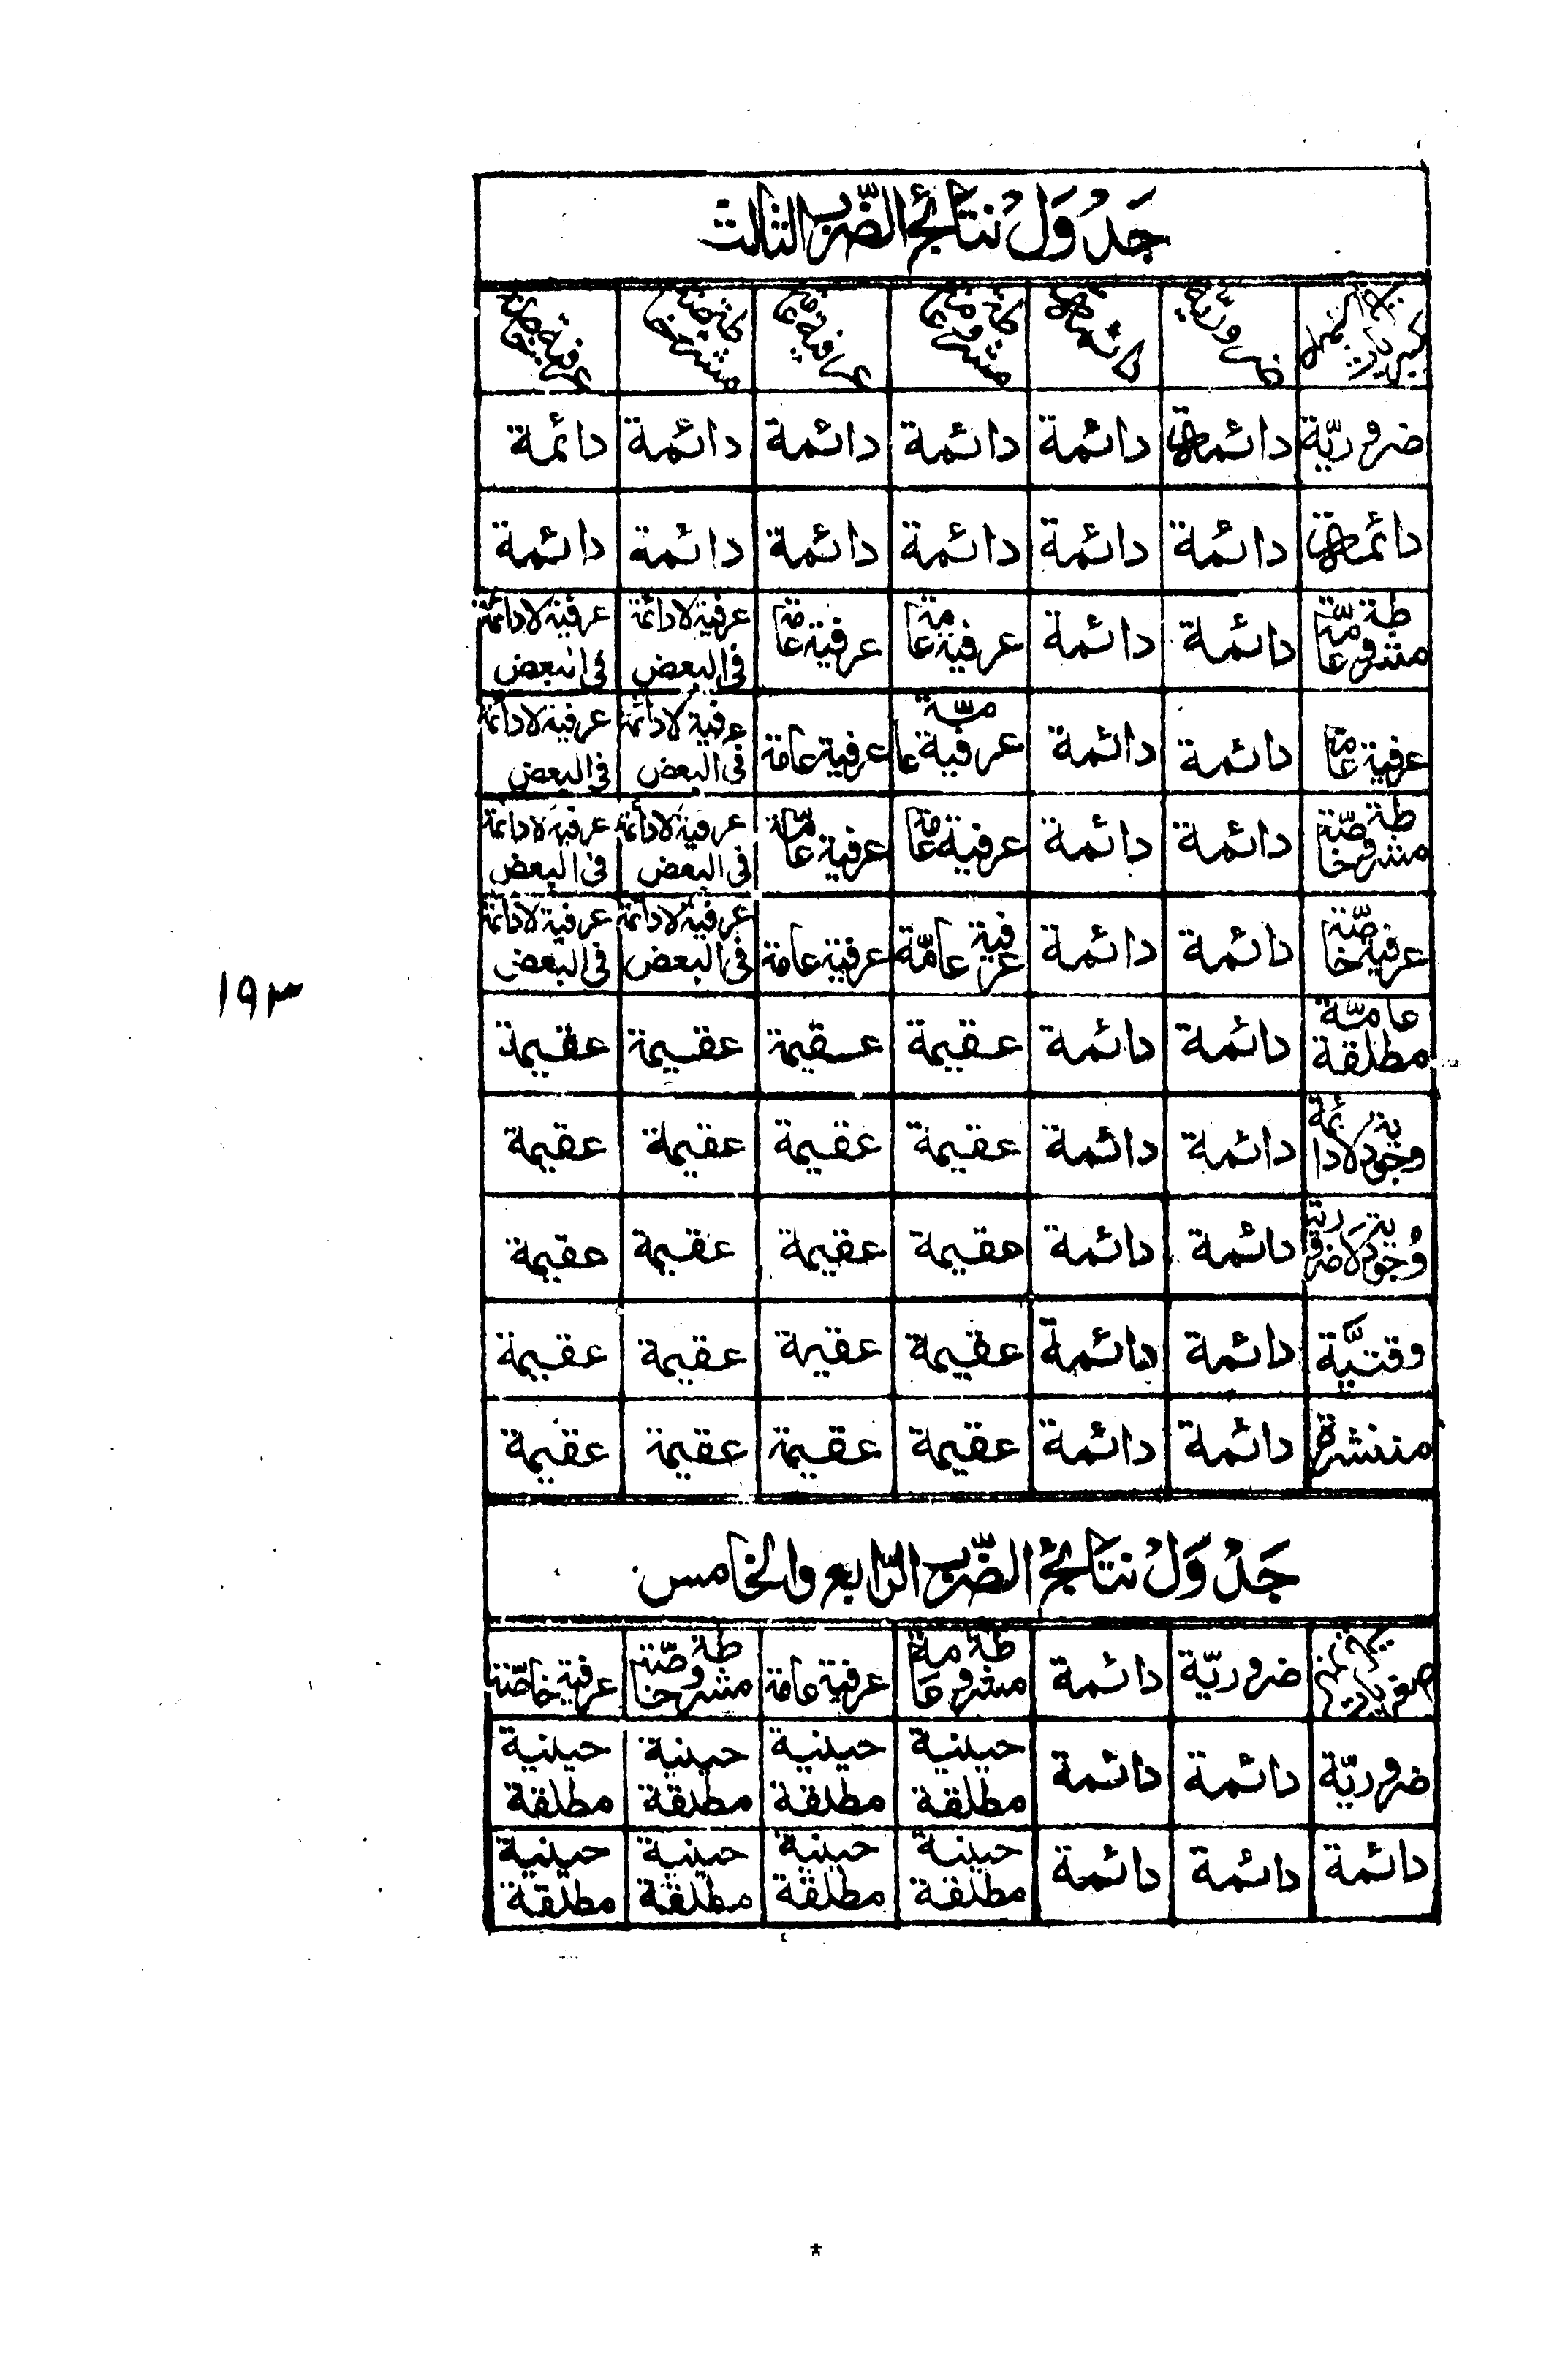 جَدْوَلْ نَتَائِجُ الضَّرْبِ الثَّالِث
ضرورية دائمة مشروطة عامة عرفية عامة مشروطة خاصة عرفية خاصة
ضروريّة دائمة دائمة دائمة دائمة دائمة دائمة
دائمة دائمة دائمة دائمة دائمة دائمة دائمة
مشروطة عامّة دائمة دائمة عرفية عامة عرفية عامة عرفية لادائمة فى البعض عرفية لادائمة فى البعض
عرفية عامة دائمة دائمة عرفية عامّة عرفية عامة عرفية لادائمة فى البعض عرفية لادائمة فى البعض
مشروطة خاصّة دائمة دائمة عرفية عامة عرفية عامّة عرفية لادائمة فى البعض عرفية لادائمة فى البعض
عرفية خاصّة دائمة دائمة عرفية عامّة عرفية عامة عرفية لادائمة فى البعض عرفية لادائمة فى البعض
عامّة مطلقة دائمة دائمة عقيمة عقيمة عقيمة عقيمة
وجودية لادائمة دائمة دائمة عقيمة عقيمة عقيمة عقيمة
وُجودية لاضرورية دائمة دائمة عقيمة عقيمة عقيمة عقيمة
وقتيَّة دائمة دائمة عقيمة عقيمة عقيمة عقيمة
منتشرة دائمة دائمة عقيمة عقيمة عقيمة عقيمة
جَدْوَلْ نَتَائِجُ الضَّرْبِ الرَّابِعِ وَالخَامس
ضروريّة دائمة مشروطة عامة عرفية عامة مشروطة خاصّة عرفية خاصّة
ضروريّة دائمة دائمة حينية مطلقة حينية مطلقة حينية مطلقة حينية مطلقة
دائمة دائمة دائمة حينية مطلقة حينية مطلقة حينية مطلقة حينية مطلقة
١٩٣
*